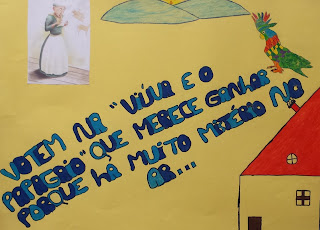 VOTEM NA "VIÚVA E O
PAPAGAIO" QUE MERECE GANHAR
PORQUE HÁ MUITO MISTÉRIO NO
AR...